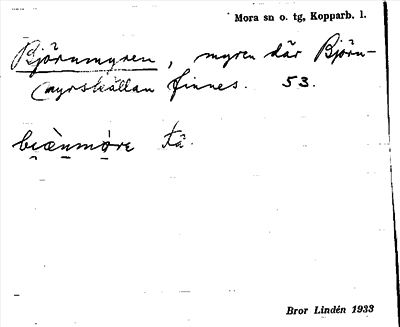 Mora sn o. tg, Kopparb. l.
Björnmyren, myren där Björn-
myrskällan finnes. 53.
Bror Lindén 1933